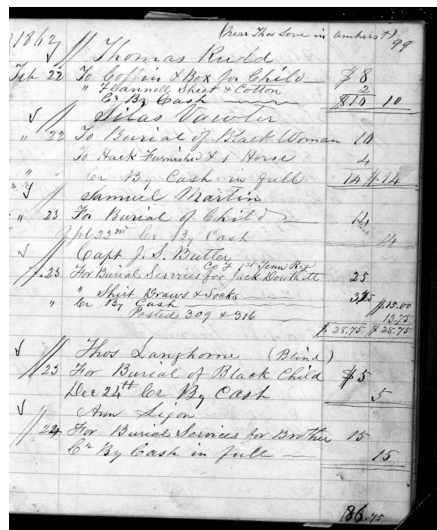 (Near Thos Love in Amherst) 99
1862 // Thomas Rudd
Feb 22 To Coffin & Box for Child $ 8
" Flannell Sheet & Cotton 2
Cr By Cash $10 10
// Silas Vawter
" 22 To Burial of Black Woman 10
To Hack Furnished & 1 Horse 4
" Cr By Cash in full 14 $14
// Samuel Martin
" 23 For Burial of Child 14
Apl 23rd Cr By Cash 14
// Capt J. S. Butler
Co F 1st Tenn Reg
" 23 For Burial Services for Jack Douthitt 25
" Shirt Draws & Socks 3.75
" Cr By Cash $15.00
Posted 309 & 316 13.75
$28.75 $28.75
// Thos Langhorne (Blind)
" 23 For Burial of Black Child $5
Dec 24th Cr By Cash 5
// Ann
" 24 For Burial Services for Brother 15
Cr By Cash in full 15
86.75